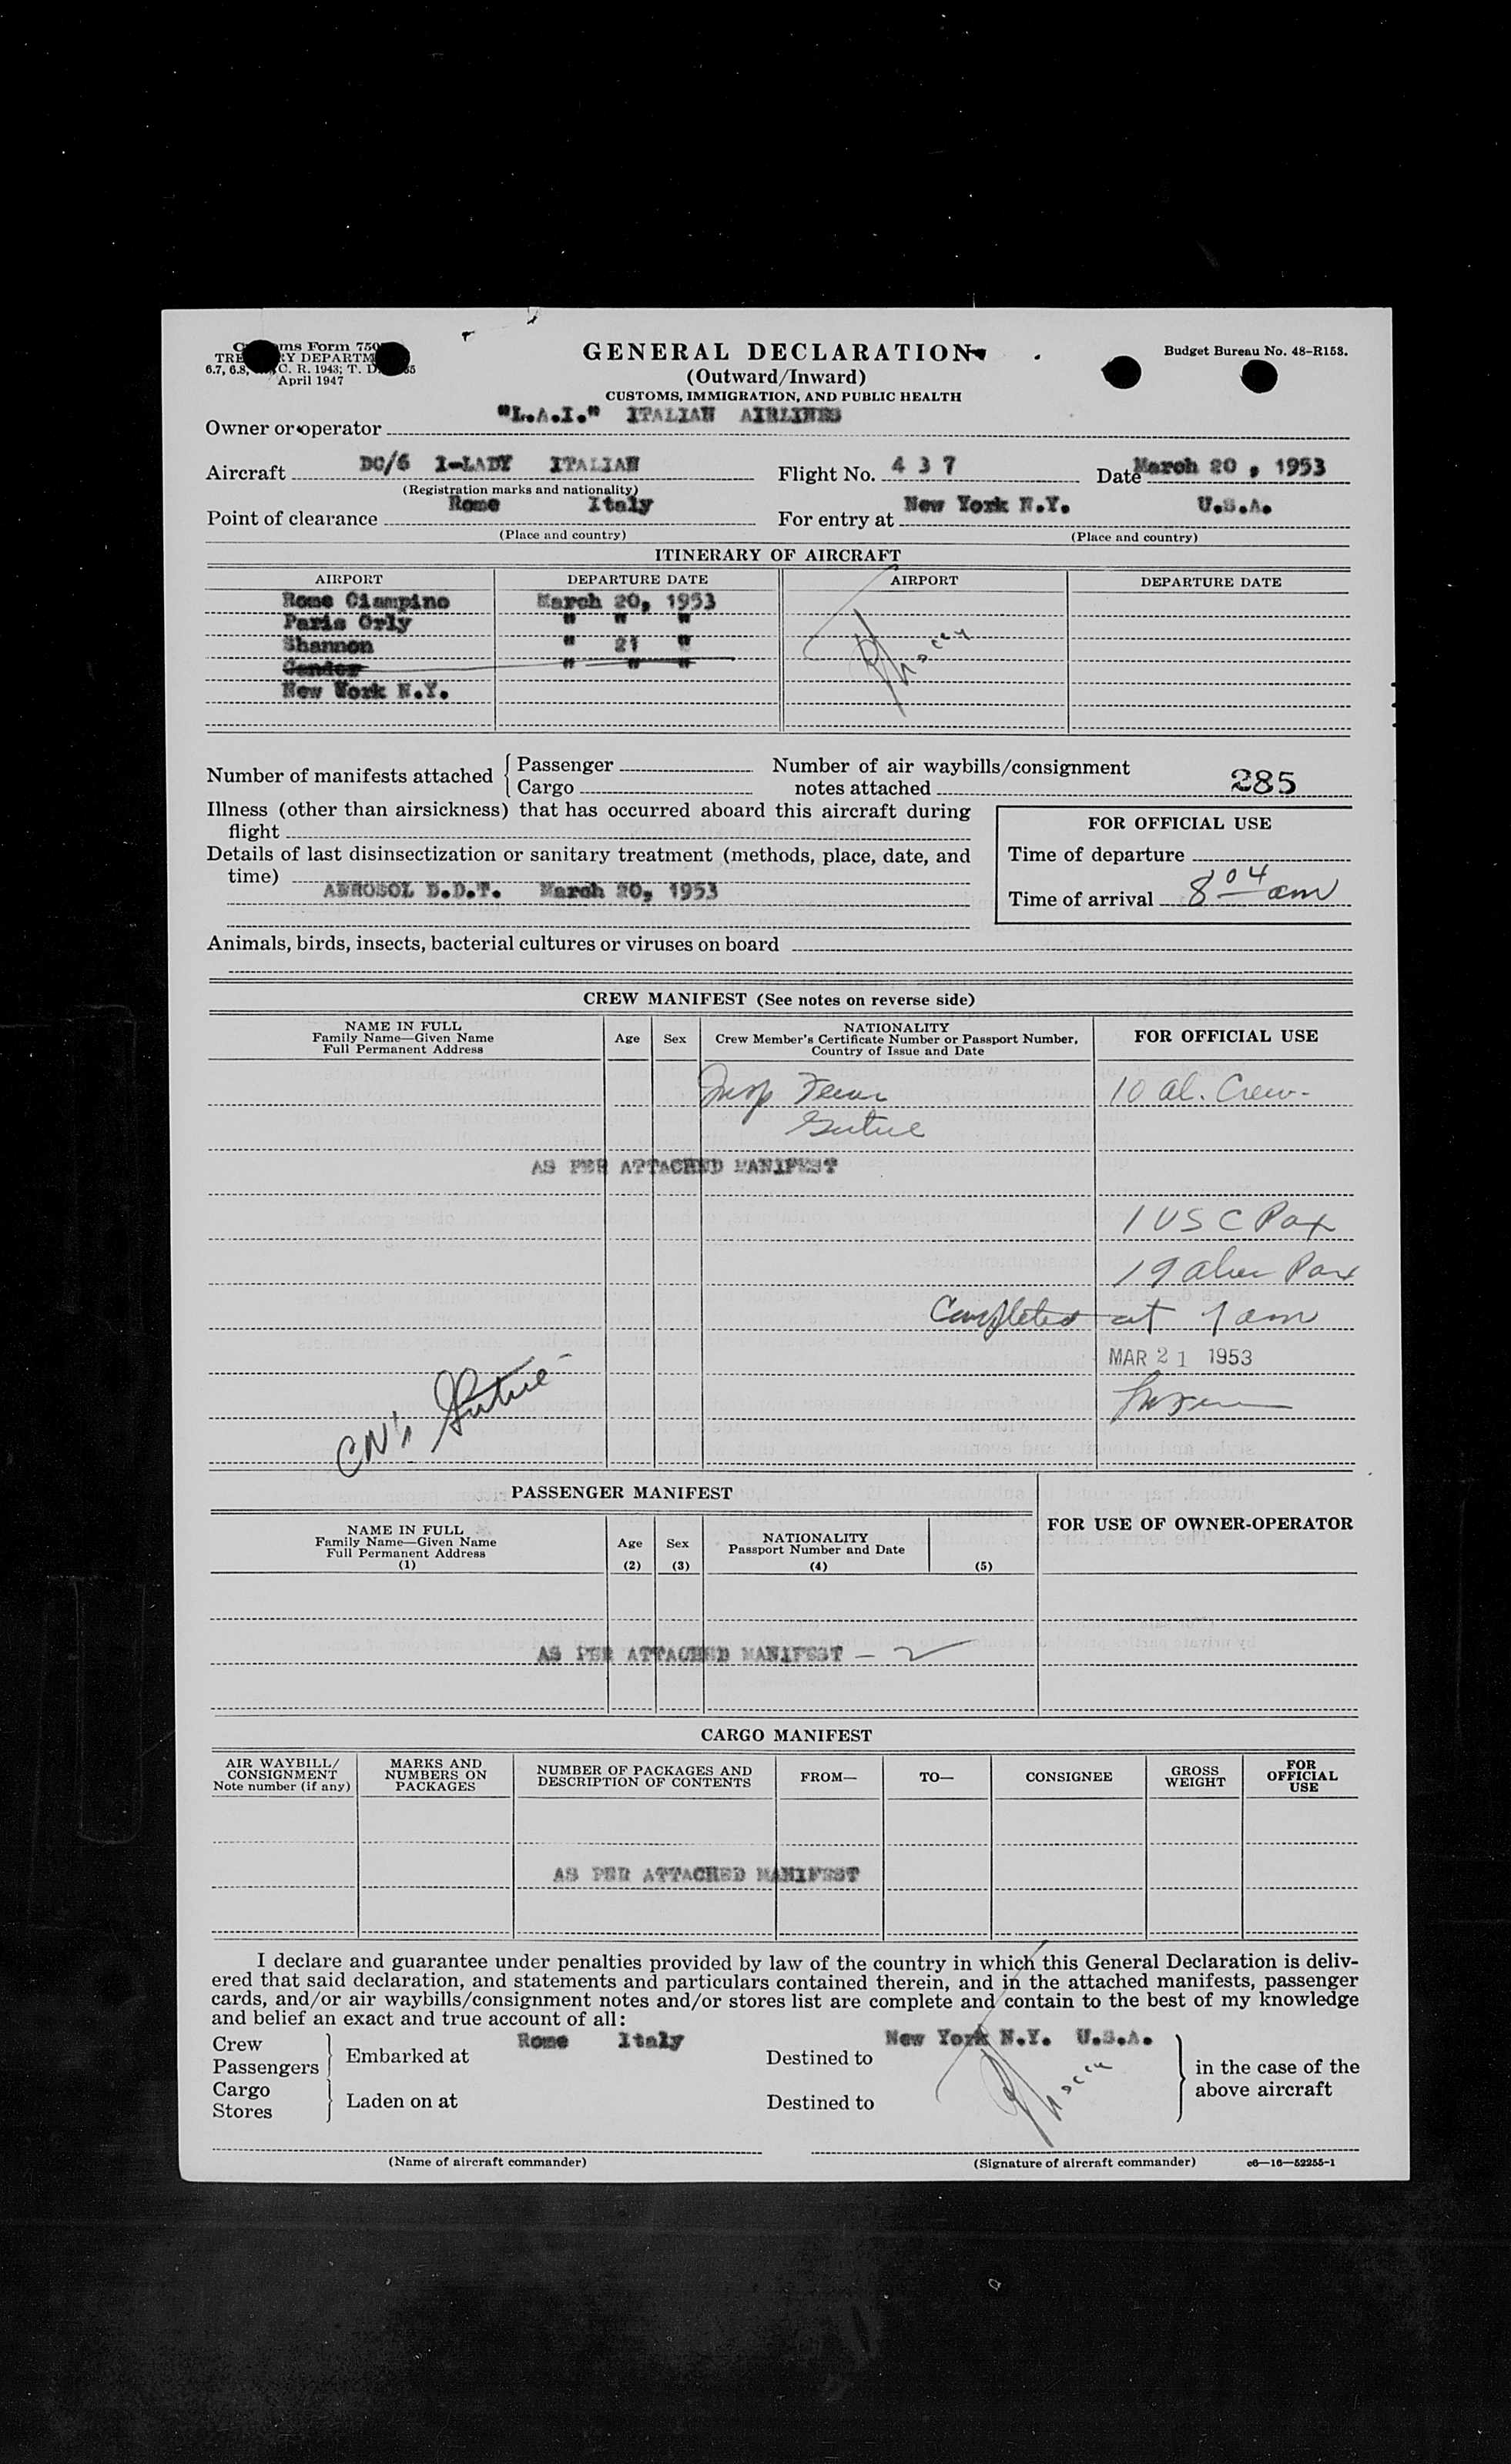 GENERAL DECLARATION
(Outward/Inward)
CUSTOMS, IMMIGRATION, AND PUBLIC HEALTH
ms Form 750
RY DEPARTM
6.7, 6.8, C. R. 1943; T. D.
April 1947
Budget Bureau No. 48-R153.
Owner or operator "L.A.I." ITALIAN AIRLINES
Aircraft DC/6 I-LADY ITALIAN Flight No. 4 3 7 Date March 20, 1953
(Registration marks and nationality)
Point of clearance Rome Italy For entry at New York N.Y. U.S.A.
(Place and country) (Place and country)
ITINERARY OF AIRCRAFT
AIRPORT DEPARTURE DATE AIRPORT DEPARTURE DATE
Rome Ciampino March 20, 1953
Paris Orly " " "
Shannon " 21 "
Gander " " "
New York N.Y.
Number of manifests attached Passenger
Cargo
Number of air waybills/consignment
notes attached 285
Illness (other than airsickness) that has occurred aboard this aircraft during
flight
Details of last disinsectization or sanitary treatment (methods, place, date, and
time)
AEROSOL D.D.T. March 20, 1953
FOR OFFICIAL USE
Time of departure
Time of arrival 8 04 am
Animals, birds, insects, bacterial cultures or viruses on board
CREW MANIFEST (See notes on reverse side)
NAME IN FULL
Family Name—Given Name
Full Permanent Address
Age
Sex
NATIONALITY
Crew Member's Certificate Number or Passport Number,
Country of Issue and Date
FOR OFFICIAL USE
Insp 10 al. Crew-
AS PER ATTACHED MANIFEST
1 USC Pax
19 alien Pax
Completed at am
MAR 21 1953
PASSENGER MANIFEST
NAME IN FULL
Family Name—Given Name
Full Permanent Address
(1)
Age
(2)
Sex
(3)
NATIONALITY
Passport Number and Date
(4)
(5)
FOR USE OF OWNER-OPERATOR
AS PER ATTACHED MANIFEST —
CARGO MANIFEST
AIR WAYBILL/
CONSIGNMENT
Note number (if any)
MARKS AND
NUMBERS ON
PACKAGES
NUMBER OF PACKAGES AND
DESCRIPTION OF CONTENTS
FROM—
TO—
CONSIGNEE
GROSS
WEIGHT
FOR
OFFICIAL
USE
AS PER ATTACHED MANIFEST
I declare and guarantee under penalties provided by law of the country in which this General Declaration is deliv-
ered that said declaration, and statements and particulars contained therein, and in the attached manifests, passenger
cards, and/or air waybills/consignment notes and/or stores list are complete and contain to the best of my knowledge
and belief an exact and true account of all:
Crew
Passengers
Embarked at Rome Italy Destined to New York N.Y. U.S.A.
Cargo
Stores
Laden on at Destined to
in the case of the
above aircraft
(Name of aircraft commander) (Signature of aircraft commander) c6—16—52255-1